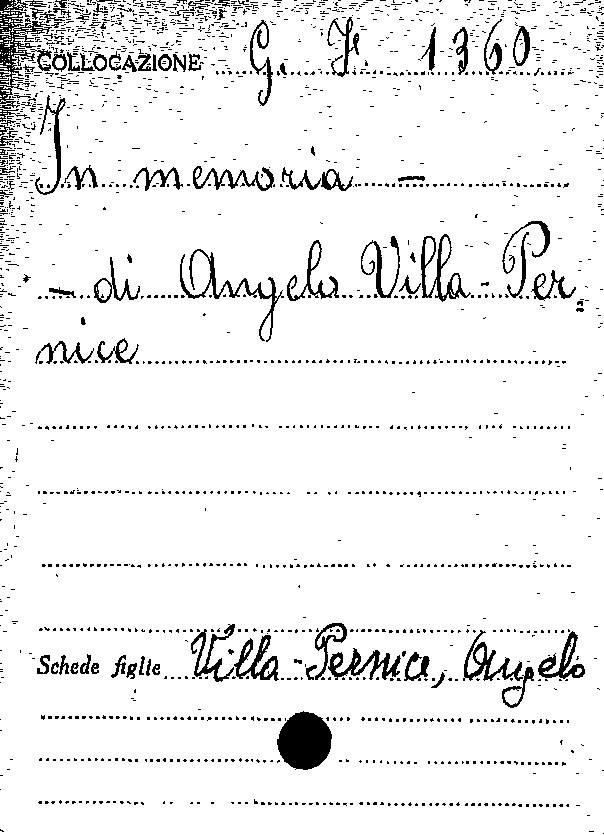 COLLOCAZIONE G. F. 1360
In memoria -
- di Angelo Villa-Per=
nice
Schede figlie Villa-Pernice, Angelo